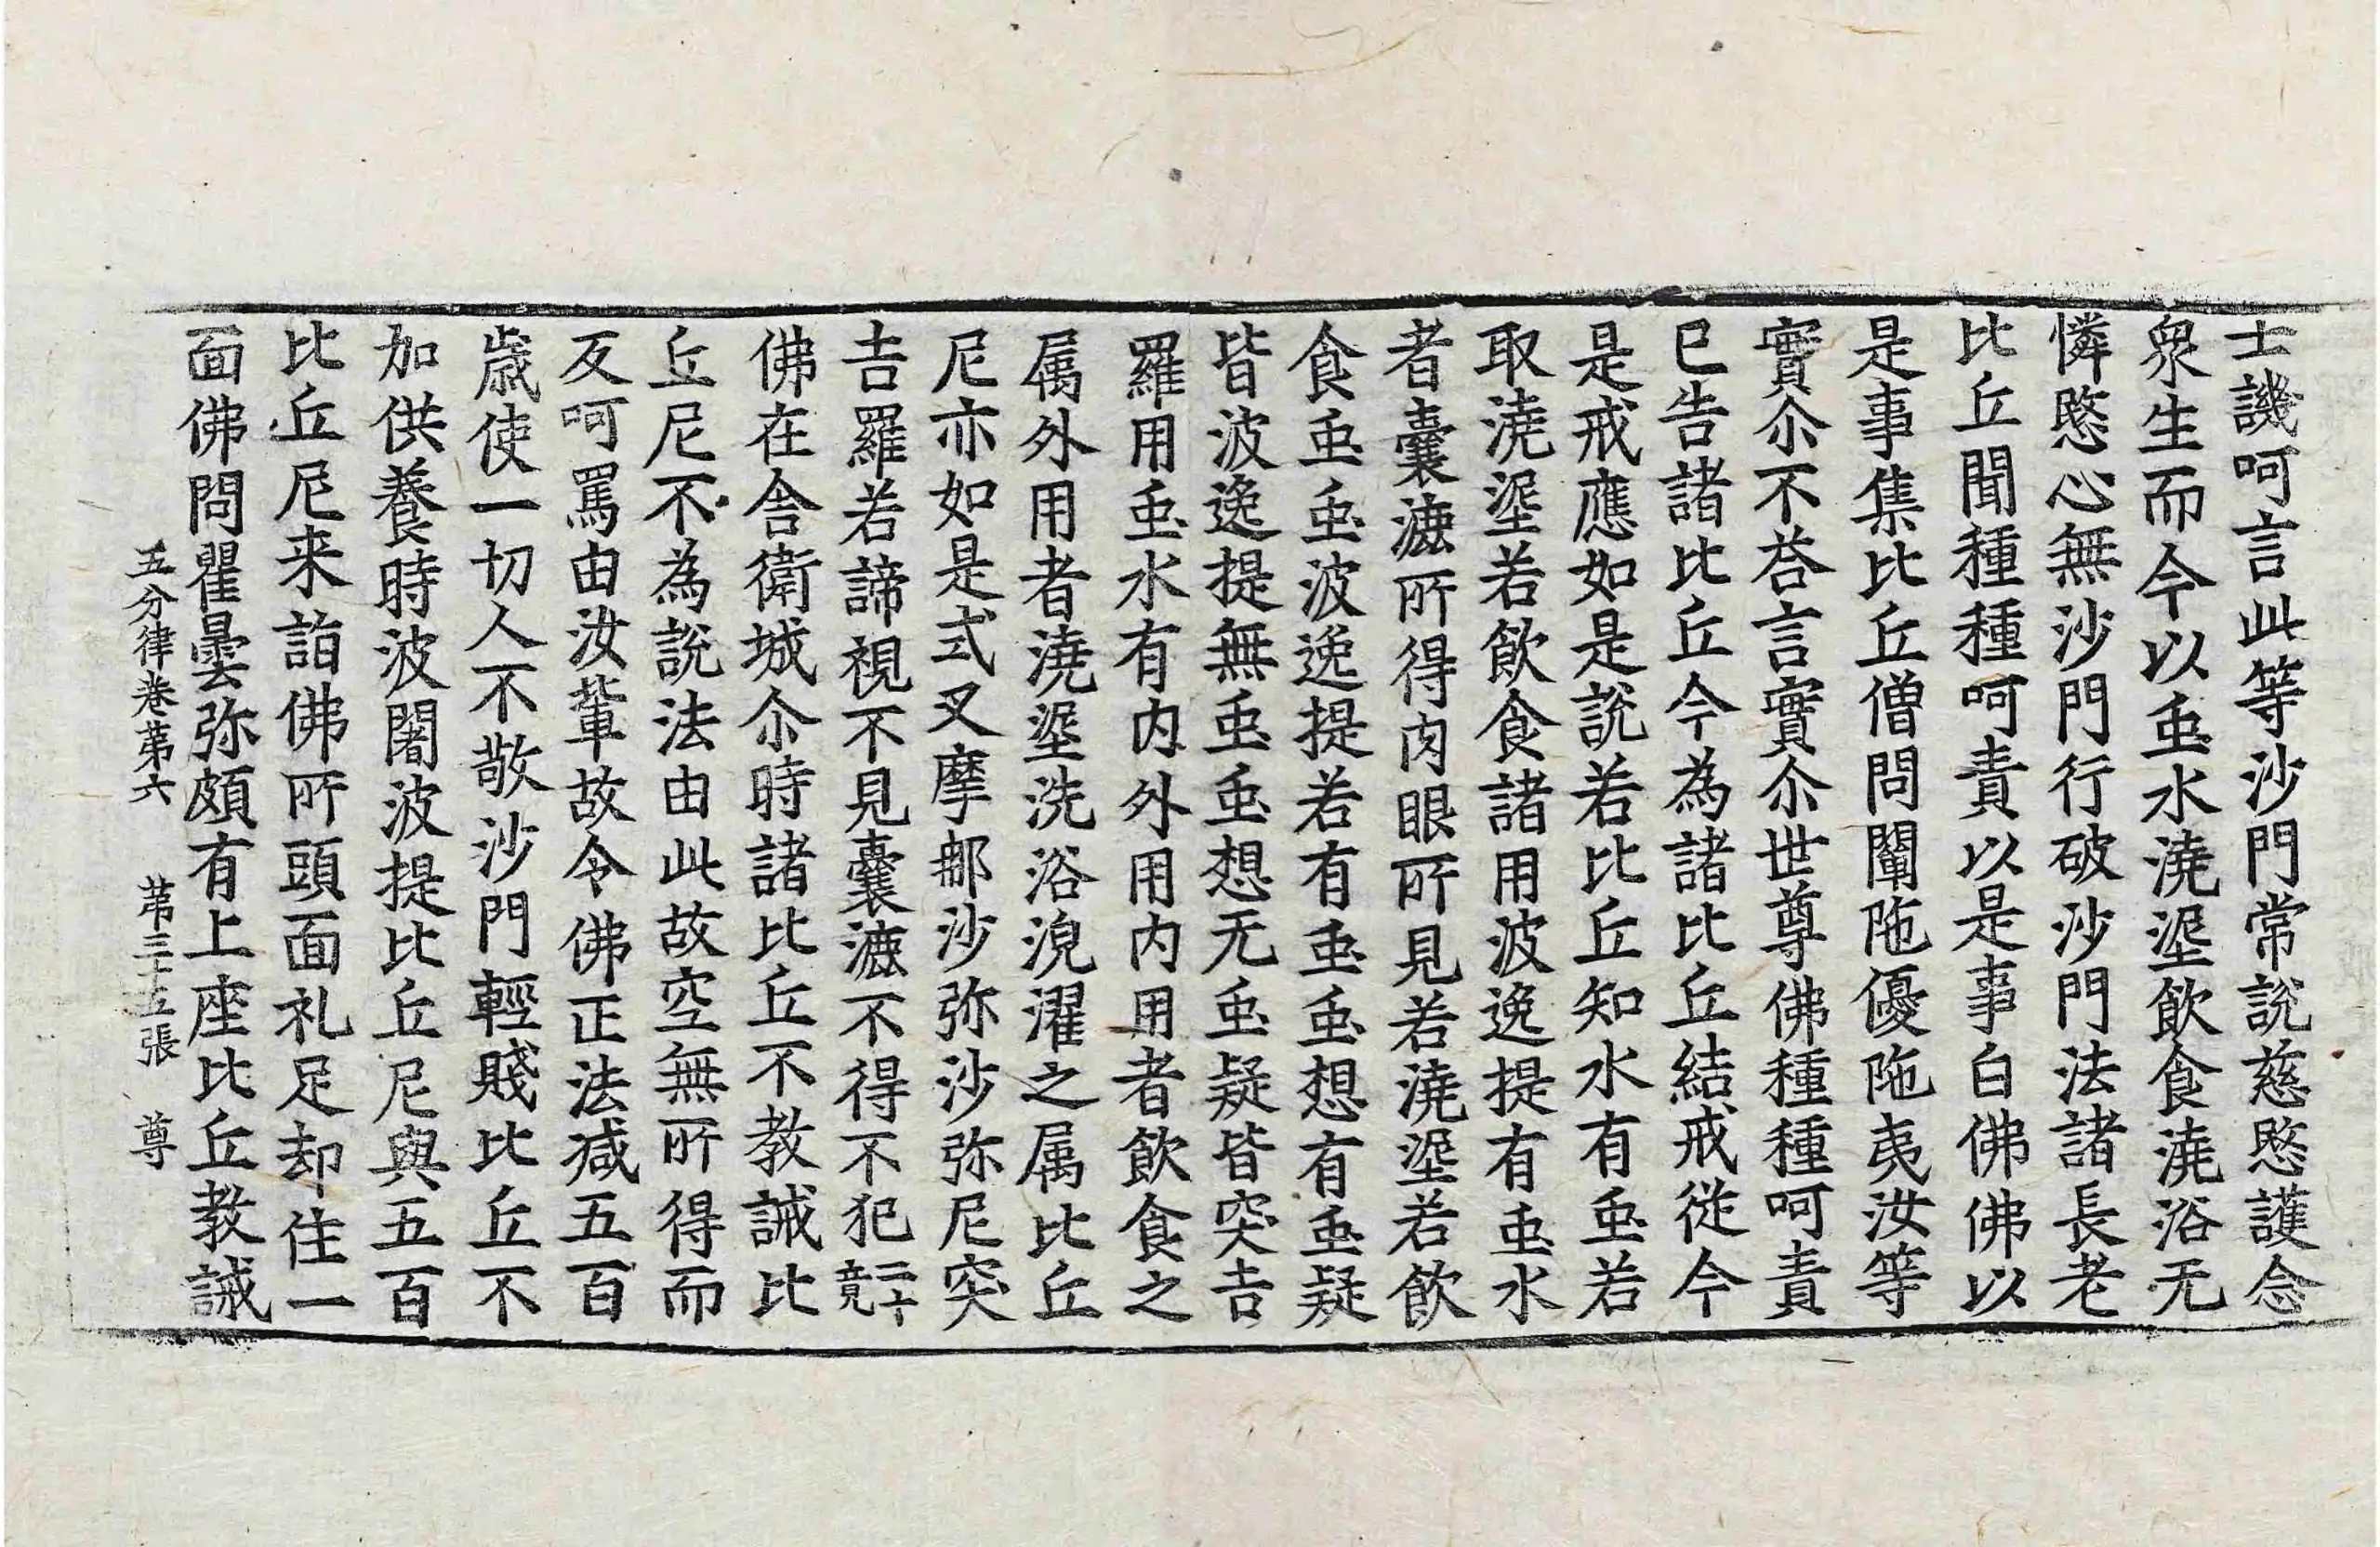 士譏呵言此等沙門常說慈愍護念
衆生而今以䖝水澆埿飲食澆浴无
憐愍心無沙門行破沙門法諸長老
比丘聞種種呵責以是事白佛佛以
是事集比丘僧問闡陁優陁夷汝等
實尒不荅言實尒世尊佛種種呵責
已告諸比丘今為諸比丘結戒從今
是戒應如是說若比丘知水有䖝若
取澆埿若飲食諸用波逸提有䖝水
者囊漉所得肉眼所見若澆埿若飲
食䖝䖝波逸提若有䖝䖝想有䖝疑
皆波逸提無䖝䖝想无䖝疑皆突吉
羅用䖝水有内外用内用者飲食之
属外用者澆埿洗浴浣濯之属比丘
尼亦如是式叉摩郍沙弥沙弥尼突
吉羅若諦視不見囊漉不得不犯二十竟
佛在舍衛城尒時諸比丘不教誡比
丘尼不為說法由此故空無所得而
反呵罵由汝輩故令佛正法减五百
歲使一切人不敬沙門輕賤比丘不
加供養時波闍波提比丘尼與五百
比丘尼来詣佛所頭面礼足却住一
面佛問瞿曇弥頗有上座比丘教誡
五分律卷第六 苐三十五張 尊